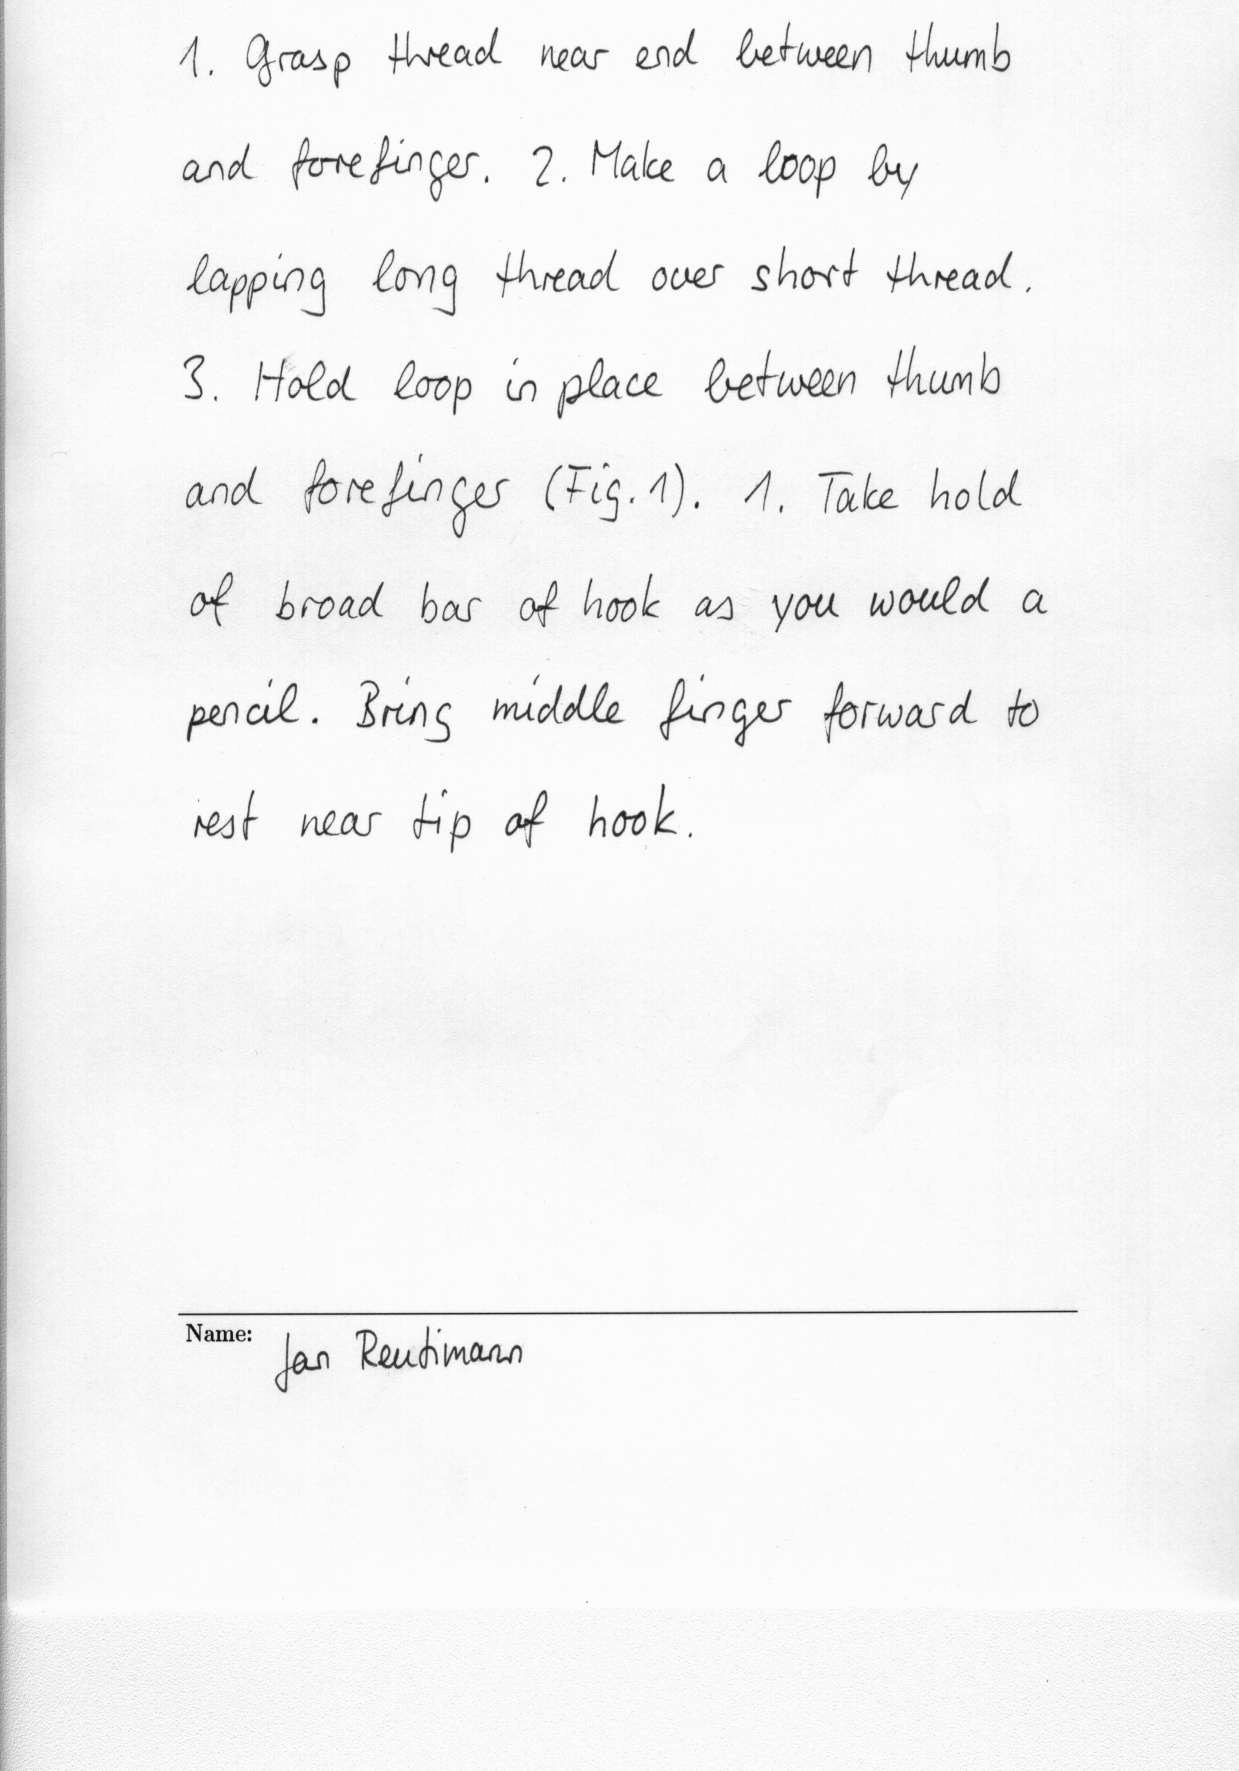 1. Grasp thread near end between thumb
and forefinger. 2. Make a loop by
lapping long thread over short thread.
3. Hold loop in place between thumb
and forefinger (Fig. 1). 1. Take hold
of broad bar of hook as you would a
pencil. Bring middle finger forward to
rest near tip of hook.
Name: Jan Reutimann